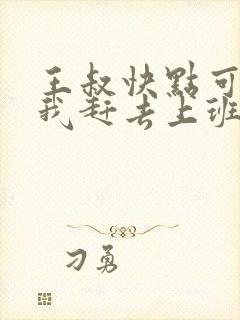 王叔快點可
我赶去上班
刁勇